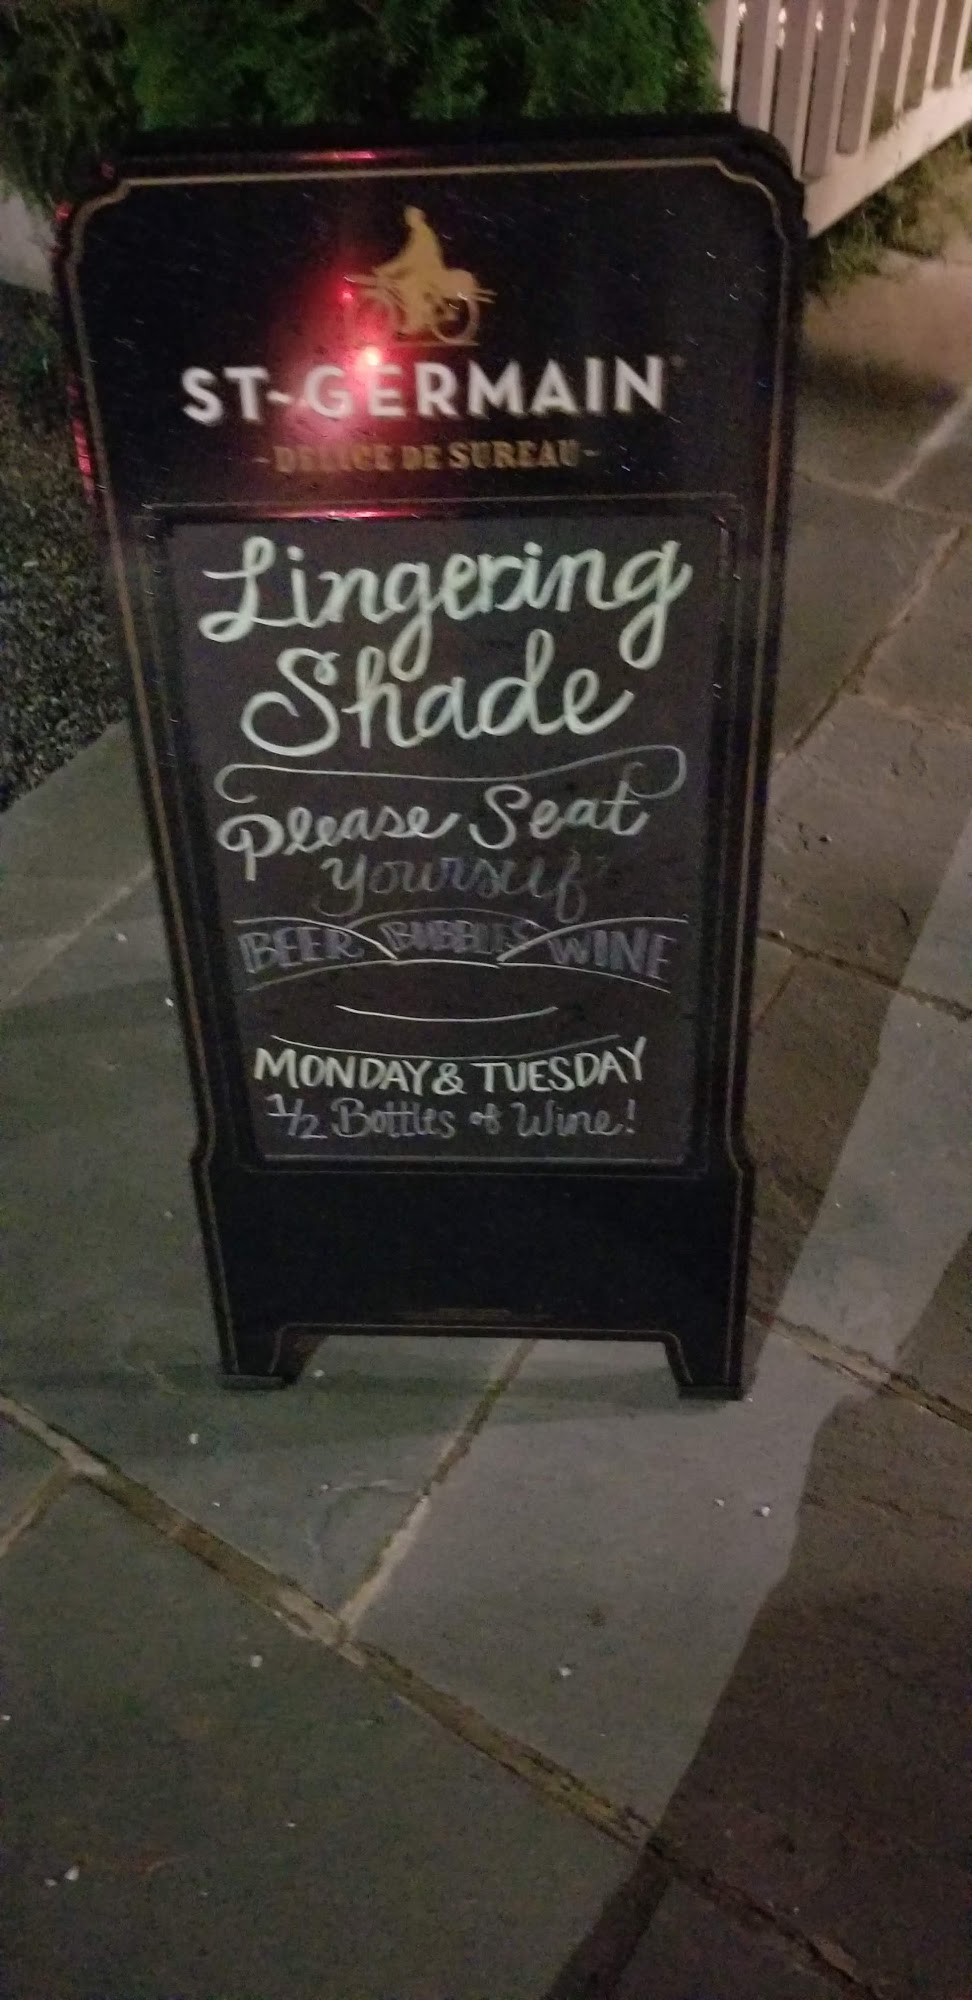 ST-GERMAIN
-DÉLICE DE SUREAU-
Lingering
Shade
Please Seat
Yourself
BEER BUBBLES WINE
MONDAY & TUESDAY
1/2 Bottles of Wine!